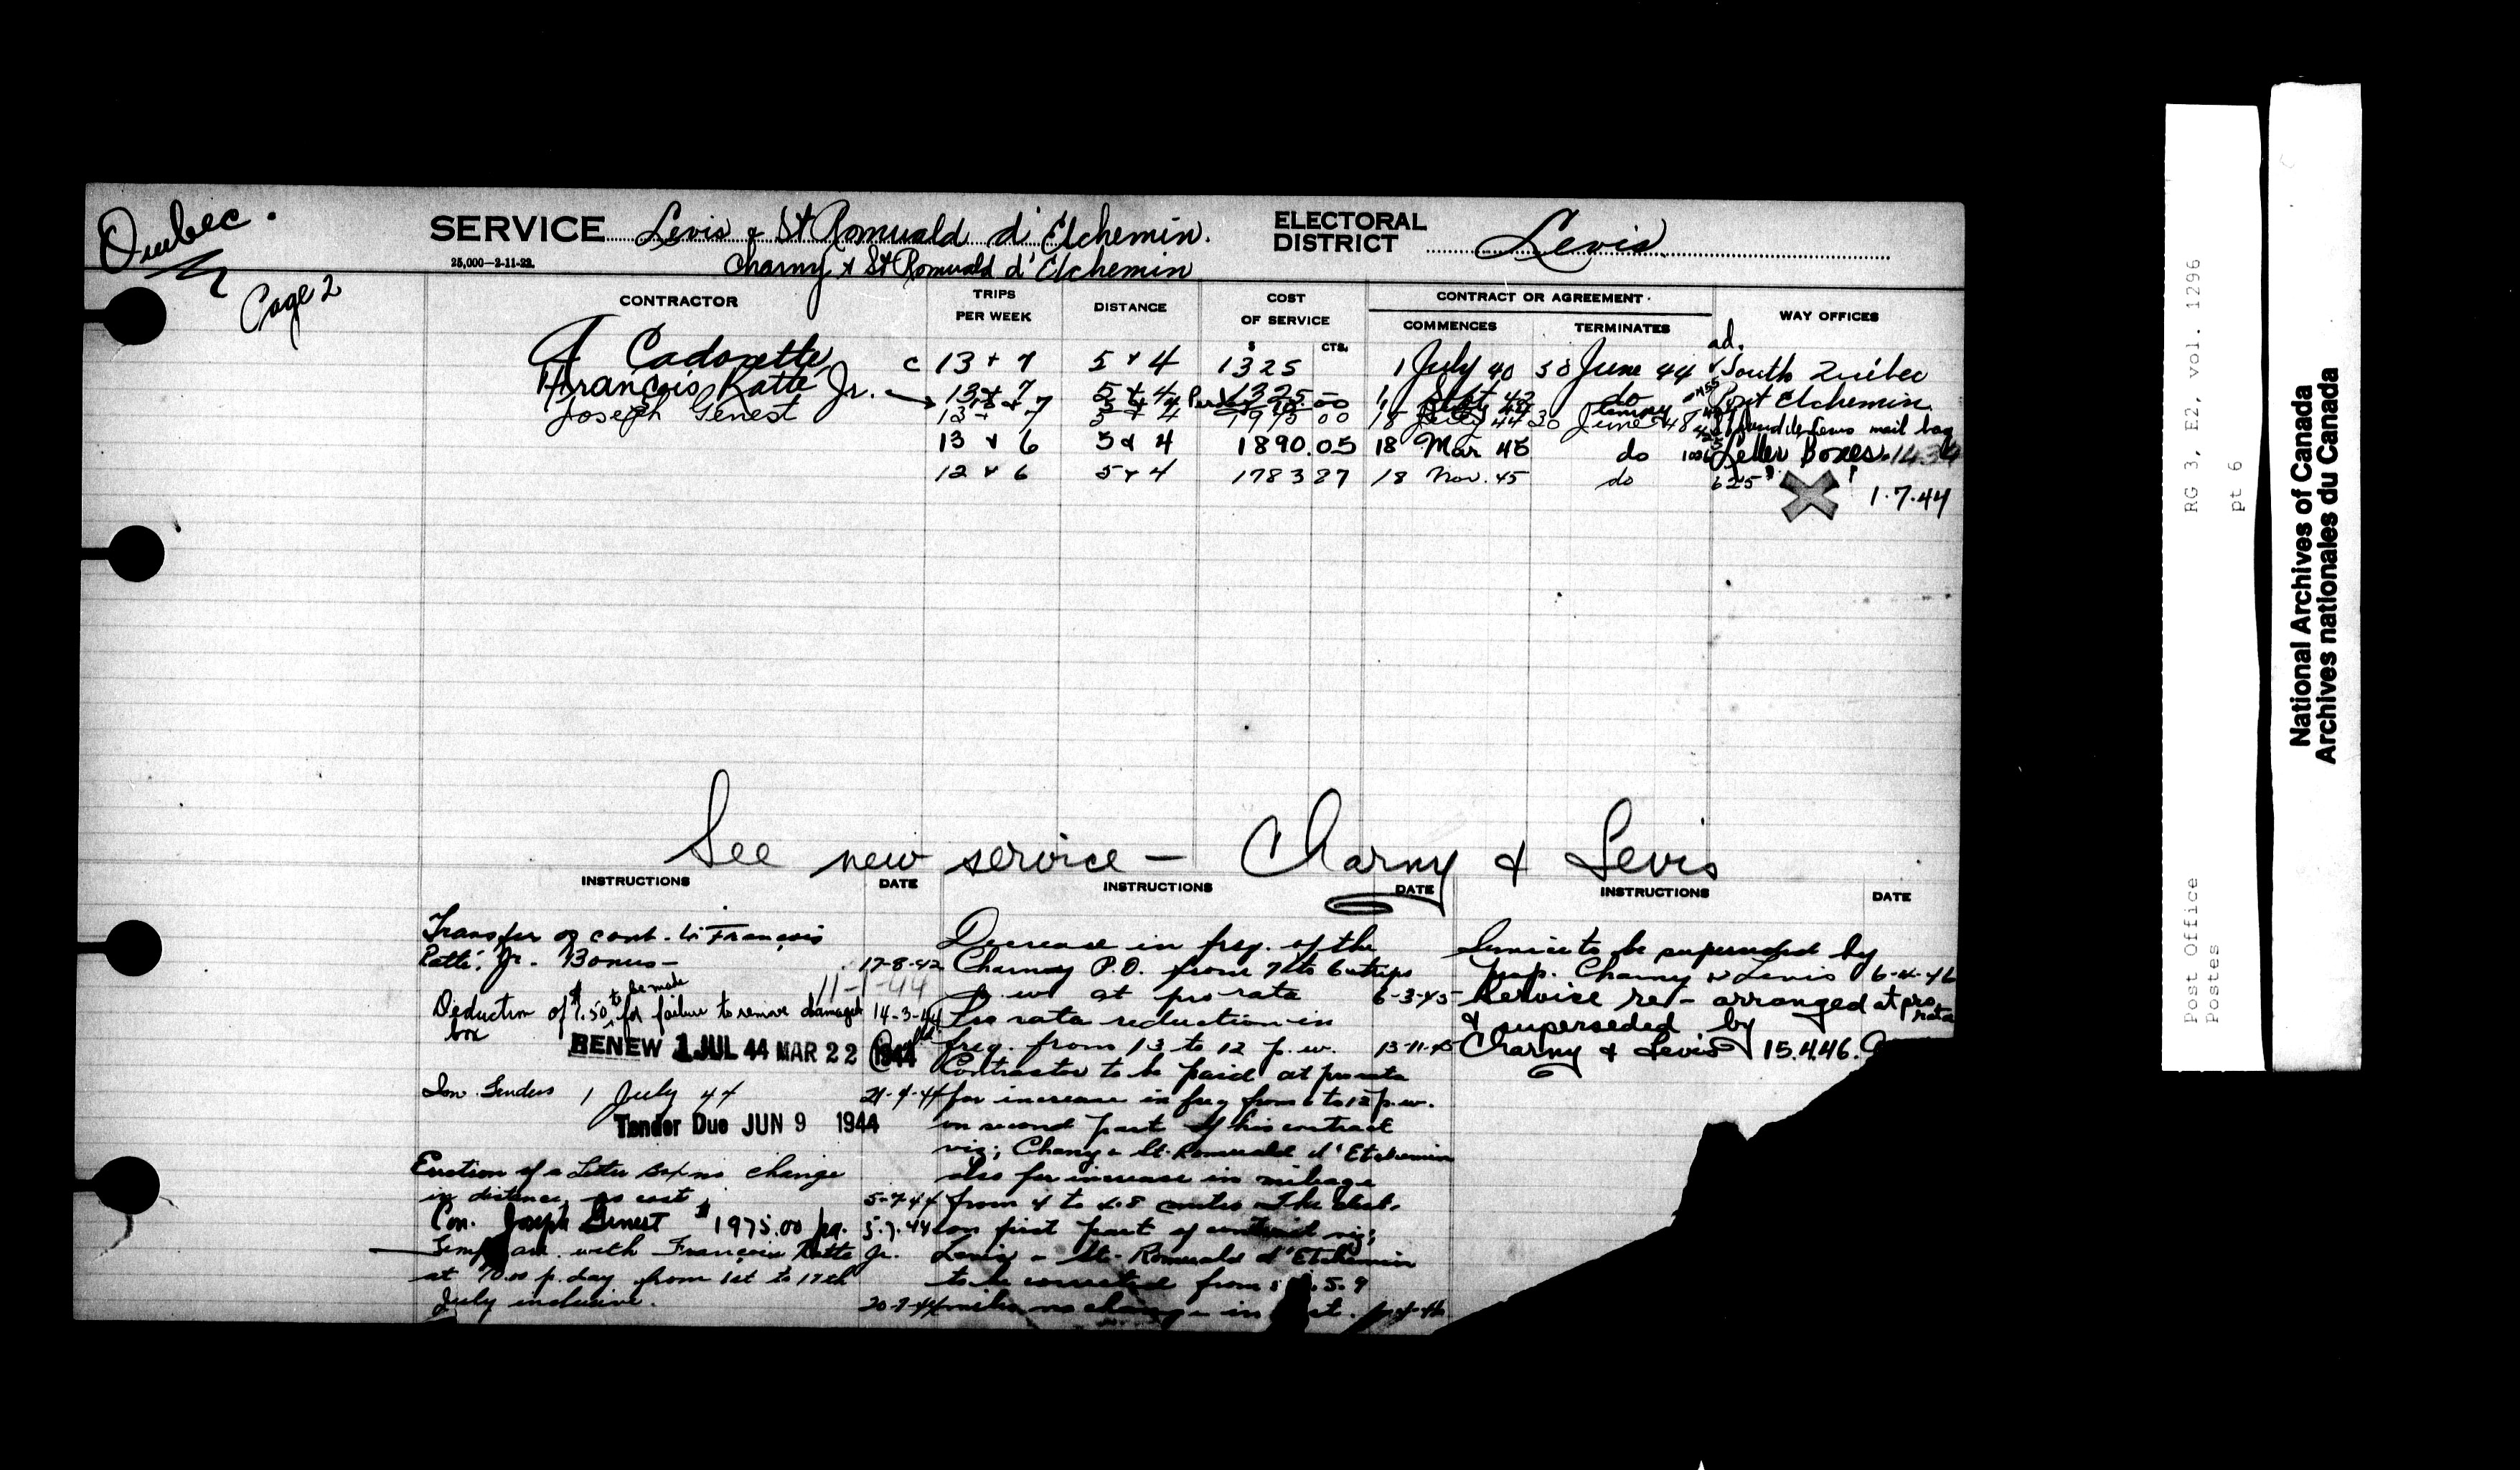 Quebec.
Page 2
SERVICE Levis & St Romuald d'Etchemin.
Charny & St Romuald d'Etchemin
25,000—2-11-22.
ELECTORAL DISTRICT Levis
CONTRACTOR TRIPS PER WEEK DISTANCE COST OF SERVICE CONTRACT OR AGREEMENT WAY OFFICES
COMMENCES TERMINATES
$ CTS.
A Cadorette c 13 + 7 5 + 4 1325 1 July 40 30 June 44 ad. South Québec
François Ratté Jr. 13 + 7 5 + 4 1325 — 1 Sept 42 do Pont Etchemin
Joseph Genest 13 + 7 5 + 4 1975 00 18 July 44 30 June 48 mail bag
13 & 6 5 & 4 1890.05 18 Mar 45 do Letter Boxes
12 & 6 5 & 4 1783 87 18 Nov. 45 do
1.7.44
See new service — Charny & Levis
INSTRUCTIONS DATE INSTRUCTIONS DATE INSTRUCTIONS DATE
Transfer of cont. to François
Ratté, Jr. Bonus — 17-8-42
11-1-44
Deduction of $1.50 to be made for failure to remove damaged 14-3-44
box
RENEW 1 JUL 44 MAR 22 1944
Inv. Tenders 1 July 44 21-4-44
Tender Due JUN 9 1944
Erection of a Letter Box no change
in distance, no cost, 5-7-44
Con. Joseph Genest $1975.00 pa. 5.7.44
Temp arr. with François Ratte Jr.
at p. day from 1st to 17th
July inclusive. 20-7-44
Decrease in freq. of the
Charny P.O. from 7 to 6 trips
p.w at pro rata 6-3-45
Pro rata reduction in
freq. from 13 to 12 p.w. 13-11-45
Contractor to be paid at pro rata
for increase in freq from 6 to 12 p.w.
on second part of his contract
viz; Charny & St. Romuald d'Etchemin
also for increase in mileage
from 4 to 4.8 miles The dist.
on first part of contract viz;
Levis & St. Romuald d'Etchemin
to be corrected from 5.9
miles no change in
Service to be superseded by
prop. Charny & Levis 6-4-46
Service re-arranged at pro rata
& superseded by
Charny & Levis 15.4.46.
RG 3, E2, vol. 1296
pt 6
Post Office
Postes
National Archives of Canada
Archives nationales du Canada